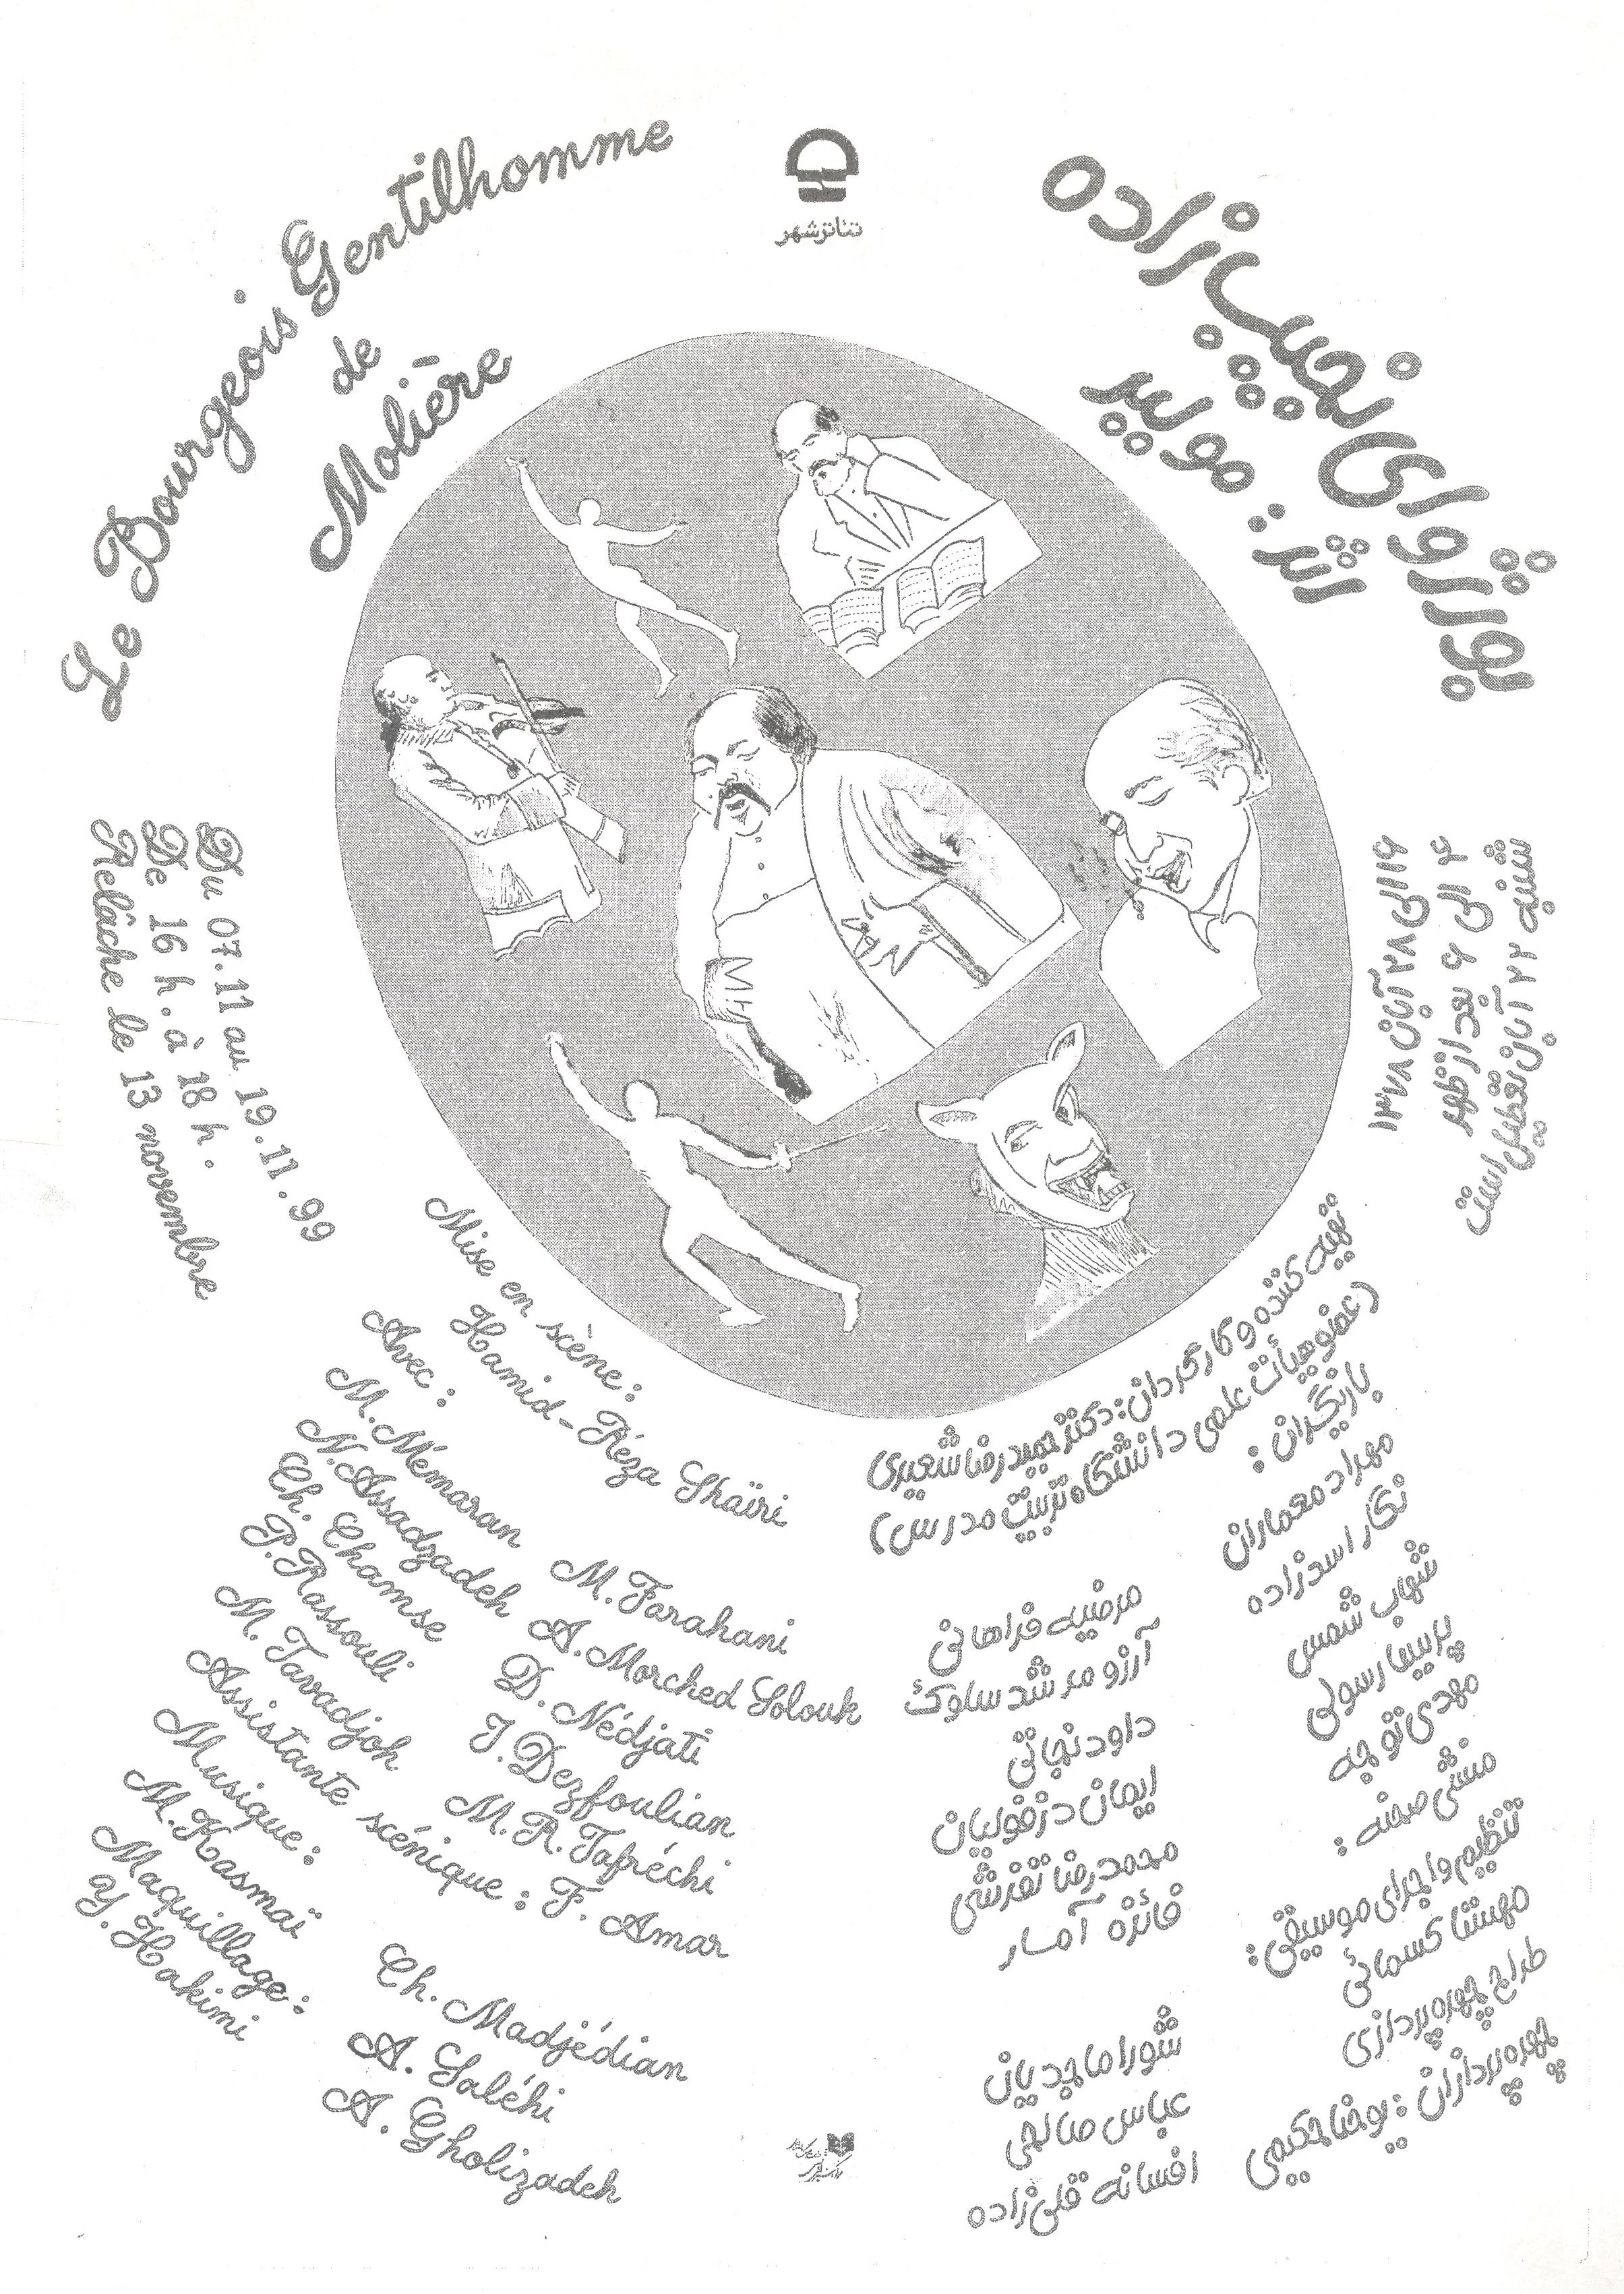 تئاترشهر
Le Bourgeois Gentilhomme
de
Molière
بورژوای نجیب‌زاده
اثر: مولیر
Du 07.11 au 19.11.99
De 16 h. à 18 h.
Relâche le 13 novembre
۱۶ الی ۲۸ آبان ۱۳۷۸
۴ الی ۶ بعد از ظهر
شنبه ۲۲ آبان تعطیل است
Mise en scène:
Hamid-Réza Shaïri
Avec:
M. Mémaran
N. Assadzadeh
Ch. Chamse
P. Rassouli
M. Tavadjoh
M. Farahani
A. Morched Solouk
D. Nédjati
I. Dezfoulian
M. R. Tafréchi
Assistante scénique: F. Amar
Musique:
M. Kasmaï
Maquillage:
Y. Hakimi
Ch. Madjédian
A. Saléhi
A. Gholizadeh
تهیه کننده و کارگردان: دکتر حمیدرضا شعیری
(عضو هیأت علمی دانشگاه تربیت مدرس)
بازیگران:
مهرداد معماران
نگار اسدزاده
شهاب شمس
پریسا رسولی
مهدی توجه
مرضیه فراهانی
آرزو مرشد سلوک
داود نجاتی
ایمان دزفولیان
محمدرضا تفرشی
منشی صحنه:
فائزه آمار
تنظیم و اجرای موسیقی:
مهشتا کسمائی
طراح چهره‌پردازی
چهره‌پردازان: یوحنا حکیمی
شورا ماجدیان
عباس صالحی
افسانه قلی‌زاده